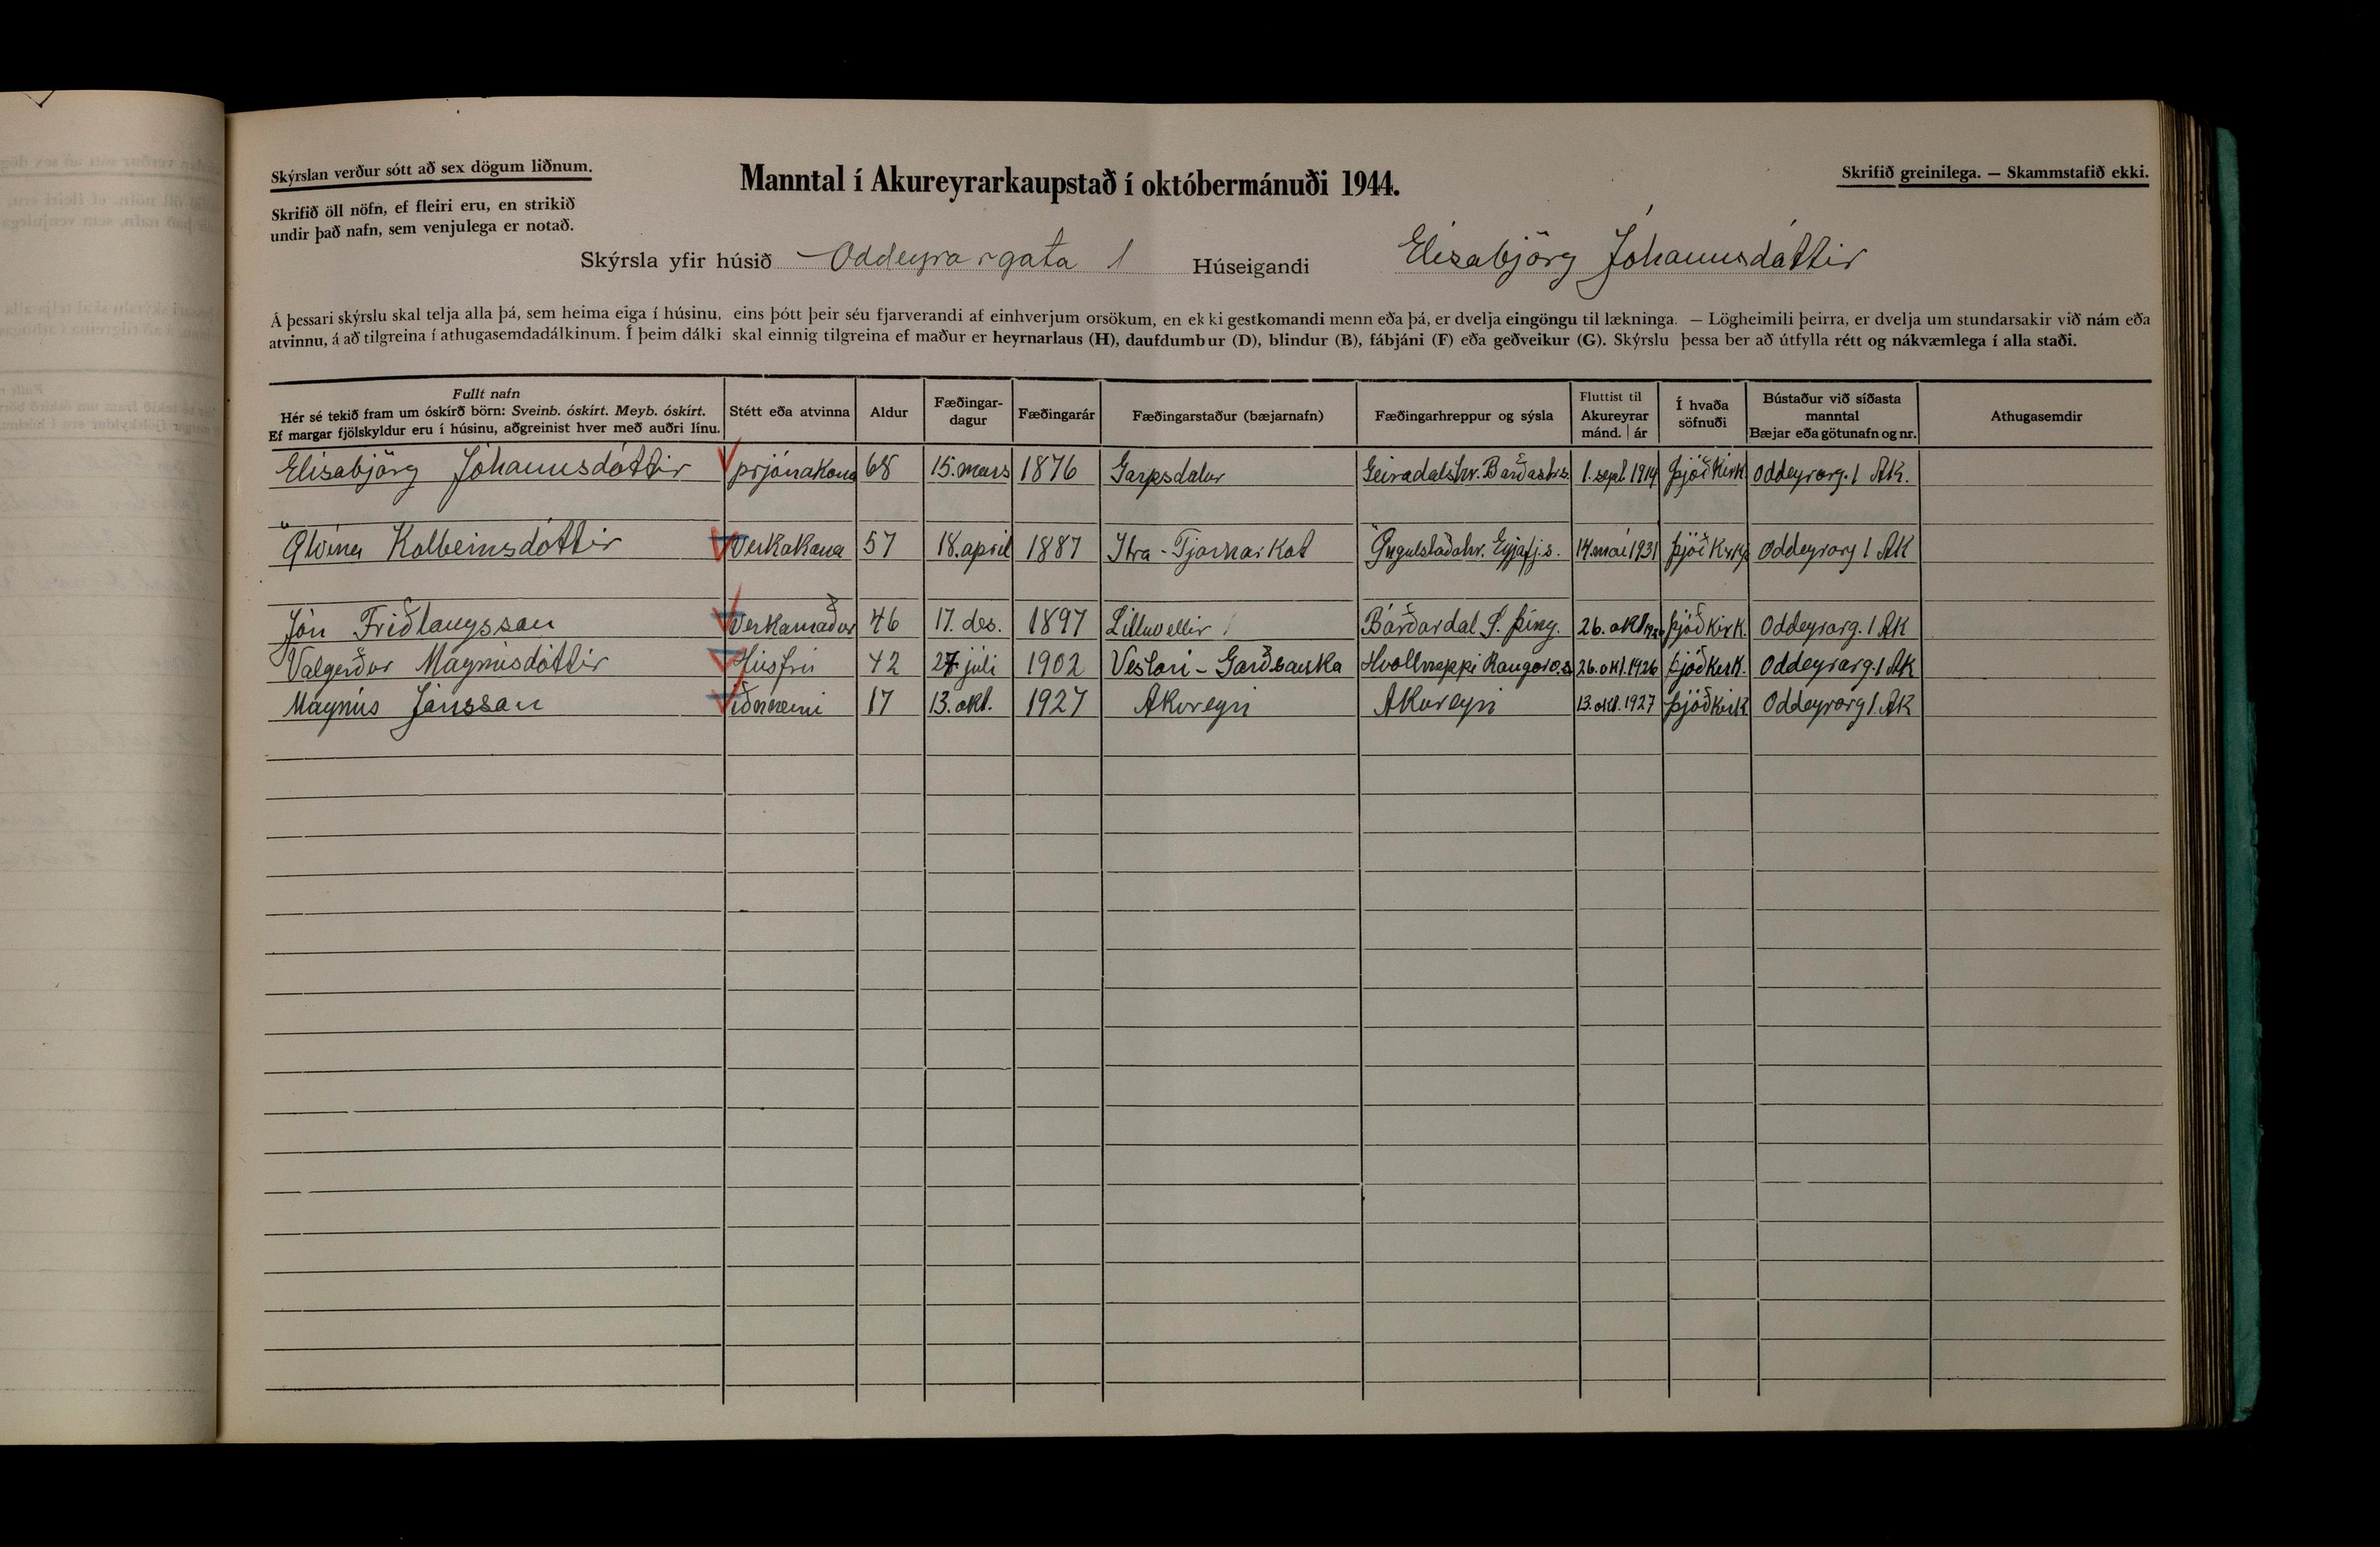 Skýrslan verður sótt að sex dögum liðnum.
Manntal í Akureyrarkaupstað í októbermánuði 1944.
Skrifið greinilega. — Skammstafið ekki.
Skrifið öll nöfn, ef fleiri eru, en strikið
undir það nafn, sem venjulega er notað.
Skýrsla yfir húsið Oddeyrargata 1 Húseigandi Elísabjörg Jóhannsdóttir
Á þessari skýrslu skal telja alla þá, sem heima eiga í húsinu, eins þótt þeir séu fjarverandi af einhverjum orsökum, en ekki gestkomandi menn eða þá, er dvelja eingöngu til lækninga. — Lögheimili þeirra, er dvelja um stundarsakir við nám eða
atvinnu, á að tilgreina í athugasemdadálkinum. Í þeim dálki skal einnig tilgreina ef maður er heyrnarlaus (H), daufdumbur (D), blindur (B), fábjáni (F) eða geðveikur (G). Skýrslu þessa ber að útfylla rétt og nákvæmlega í alla staði.
Fullt nafn
Hér sé tekið fram um óskírð börn: Sveinb. óskírt. Meyb. óskírt.
Ef margar fjölskyldur eru í húsinu, aðgreinist hver með auðri línu.
Stétt eða atvinna
Aldur
Fæðingar-
dagur
Fæðingarár
Fæðingarstaður (bæjarnafn)
Fæðingarhreppur og sýsla
Fluttist til
Akureyrar
mánd. | ár
Í hvaða
söfnuði
Bústaður við síðasta
manntal
Bæjar eða götunafn og nr.
Athugasemdir
Elísabjörg Jóhannsdóttir prjónakona 68 15. mars 1876 Garpsdalur Geiradalshr. Barðastrs. 1. sept. 1914 þjóðkirk. Oddeyrarg. 1 Ak.
Ölvína Kolbeinsdóttir Verkakona 57 18. apríl 1887 Itra-Tjarnarkot Öngulstaðahr. Eyjafj.s. 14. maí 1931 þjóðkirkj Oddeyrarg 1 Ak
Jón Friðlaugsson Verkamaður 46 17. des. 1897 Litluvellir Bárðardal S. þing. 26. okt 1926 þjóðkirk. Oddeyrarg. 1 Ak
Valgerður Magnúsdóttir Húsfrú 42 27 júlí 1902 Vestari-Garðsauka Hvolhreppi Rangárv.s 26. okt. 1926 þjóðkirk. Oddeyrarg. 1 Ak
Magnús Jónsson iðnnemi 17 13. okt. 1927 Akureyri Akureyri 13. okt. 1927 þjóðkirk Oddeyrarg 1. Ak